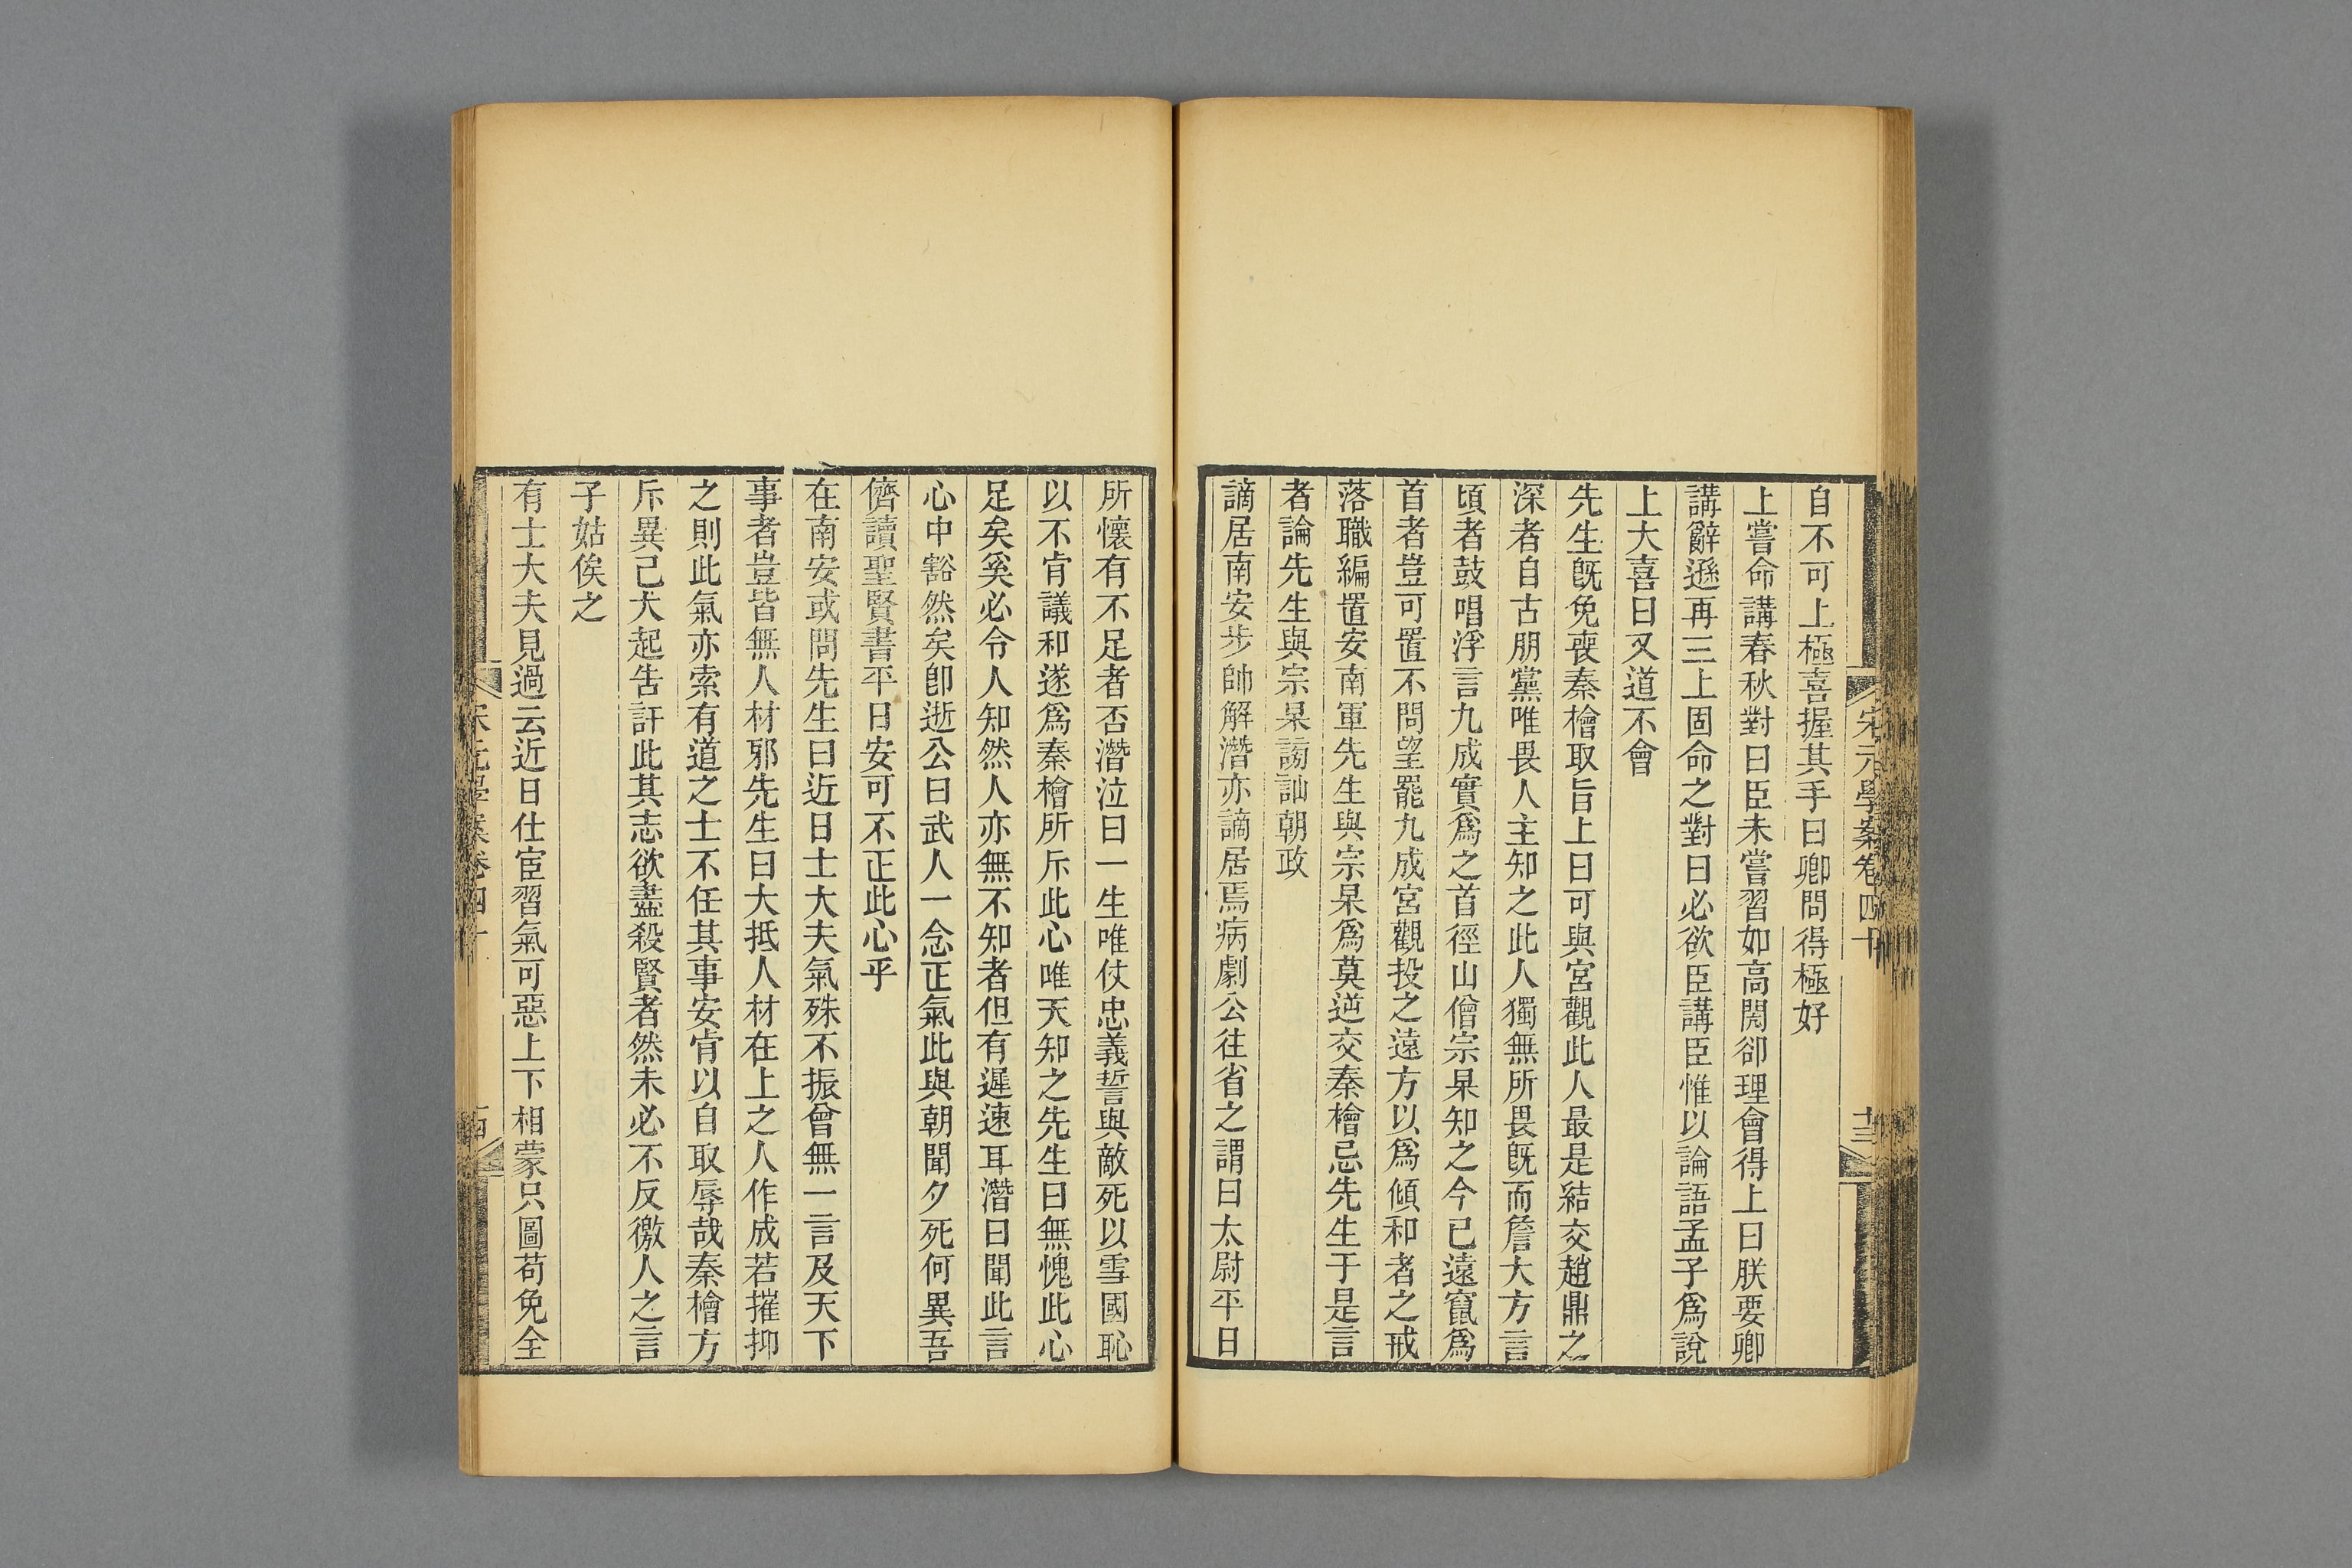 宋元學案卷四十
十三
自不可上極喜握其手曰卿問得極好
上嘗命講春秋對曰臣未嘗習如高閌卻理會得上曰朕要卿
講辭遜再三上固命之對曰必欲臣講臣惟以論語孟子爲說
上大喜曰又道不會
先生旣免喪秦檜取旨上曰可與宮觀此人最是結交趙鼎之
深者自古朋黨唯畏人主知之此人獨無所畏旣而詹大方言
頃者鼓唱浮言九成實爲之首徑山僧宗杲知之今已遠竄爲
首者豈可置不問望罷九成宮觀投之遠方以爲傾和者之戒
落職編置安南軍先生與宗杲爲莫逆交秦檜忌先生于是言
者論先生與宗杲謗訕朝政
謫居南安步帥解潛亦謫居焉病劇公往省之謂曰太尉平日
所懷有不足者否潛泣曰一生唯仗忠義誓與敵死以雪國恥
以不肯議和遂爲秦檜所斥此心唯天知之先生曰無愧此心
足矣奚必令人知然人亦無不知者但有遲速耳潛曰聞此言
心中豁然矣卽逝公曰武人一念正氣此與朝聞夕死何異吾
儕讀聖賢書平日安可不正此心乎
在南安或問先生曰近日士大夫氣殊不振曾無一言及天下
事者豈皆無人材邪先生曰大抵人材在上之人作成若摧抑
之則此氣亦索有道之士不任其事安肯以自取辱哉秦檜方
斥異己大起告訐此其志欲盡殺賢者然未必不反徼人之言
子姑俟之
有士大夫見過云近日仕宦習氣可惡上下相蒙只圖苟免全
宋元學案卷四十
十四